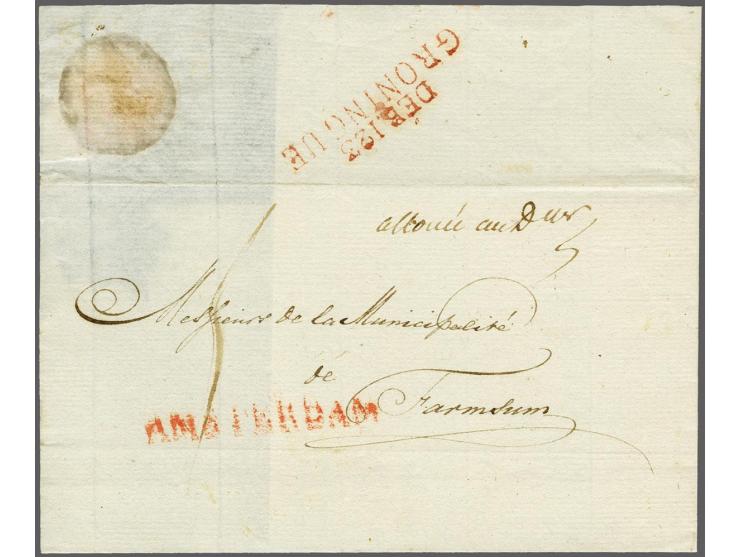 DEB. 123
GRONINGUE
alloué au Dxr
Messieurs de la Municipalité
de
Farmsum
AMSTERDAM